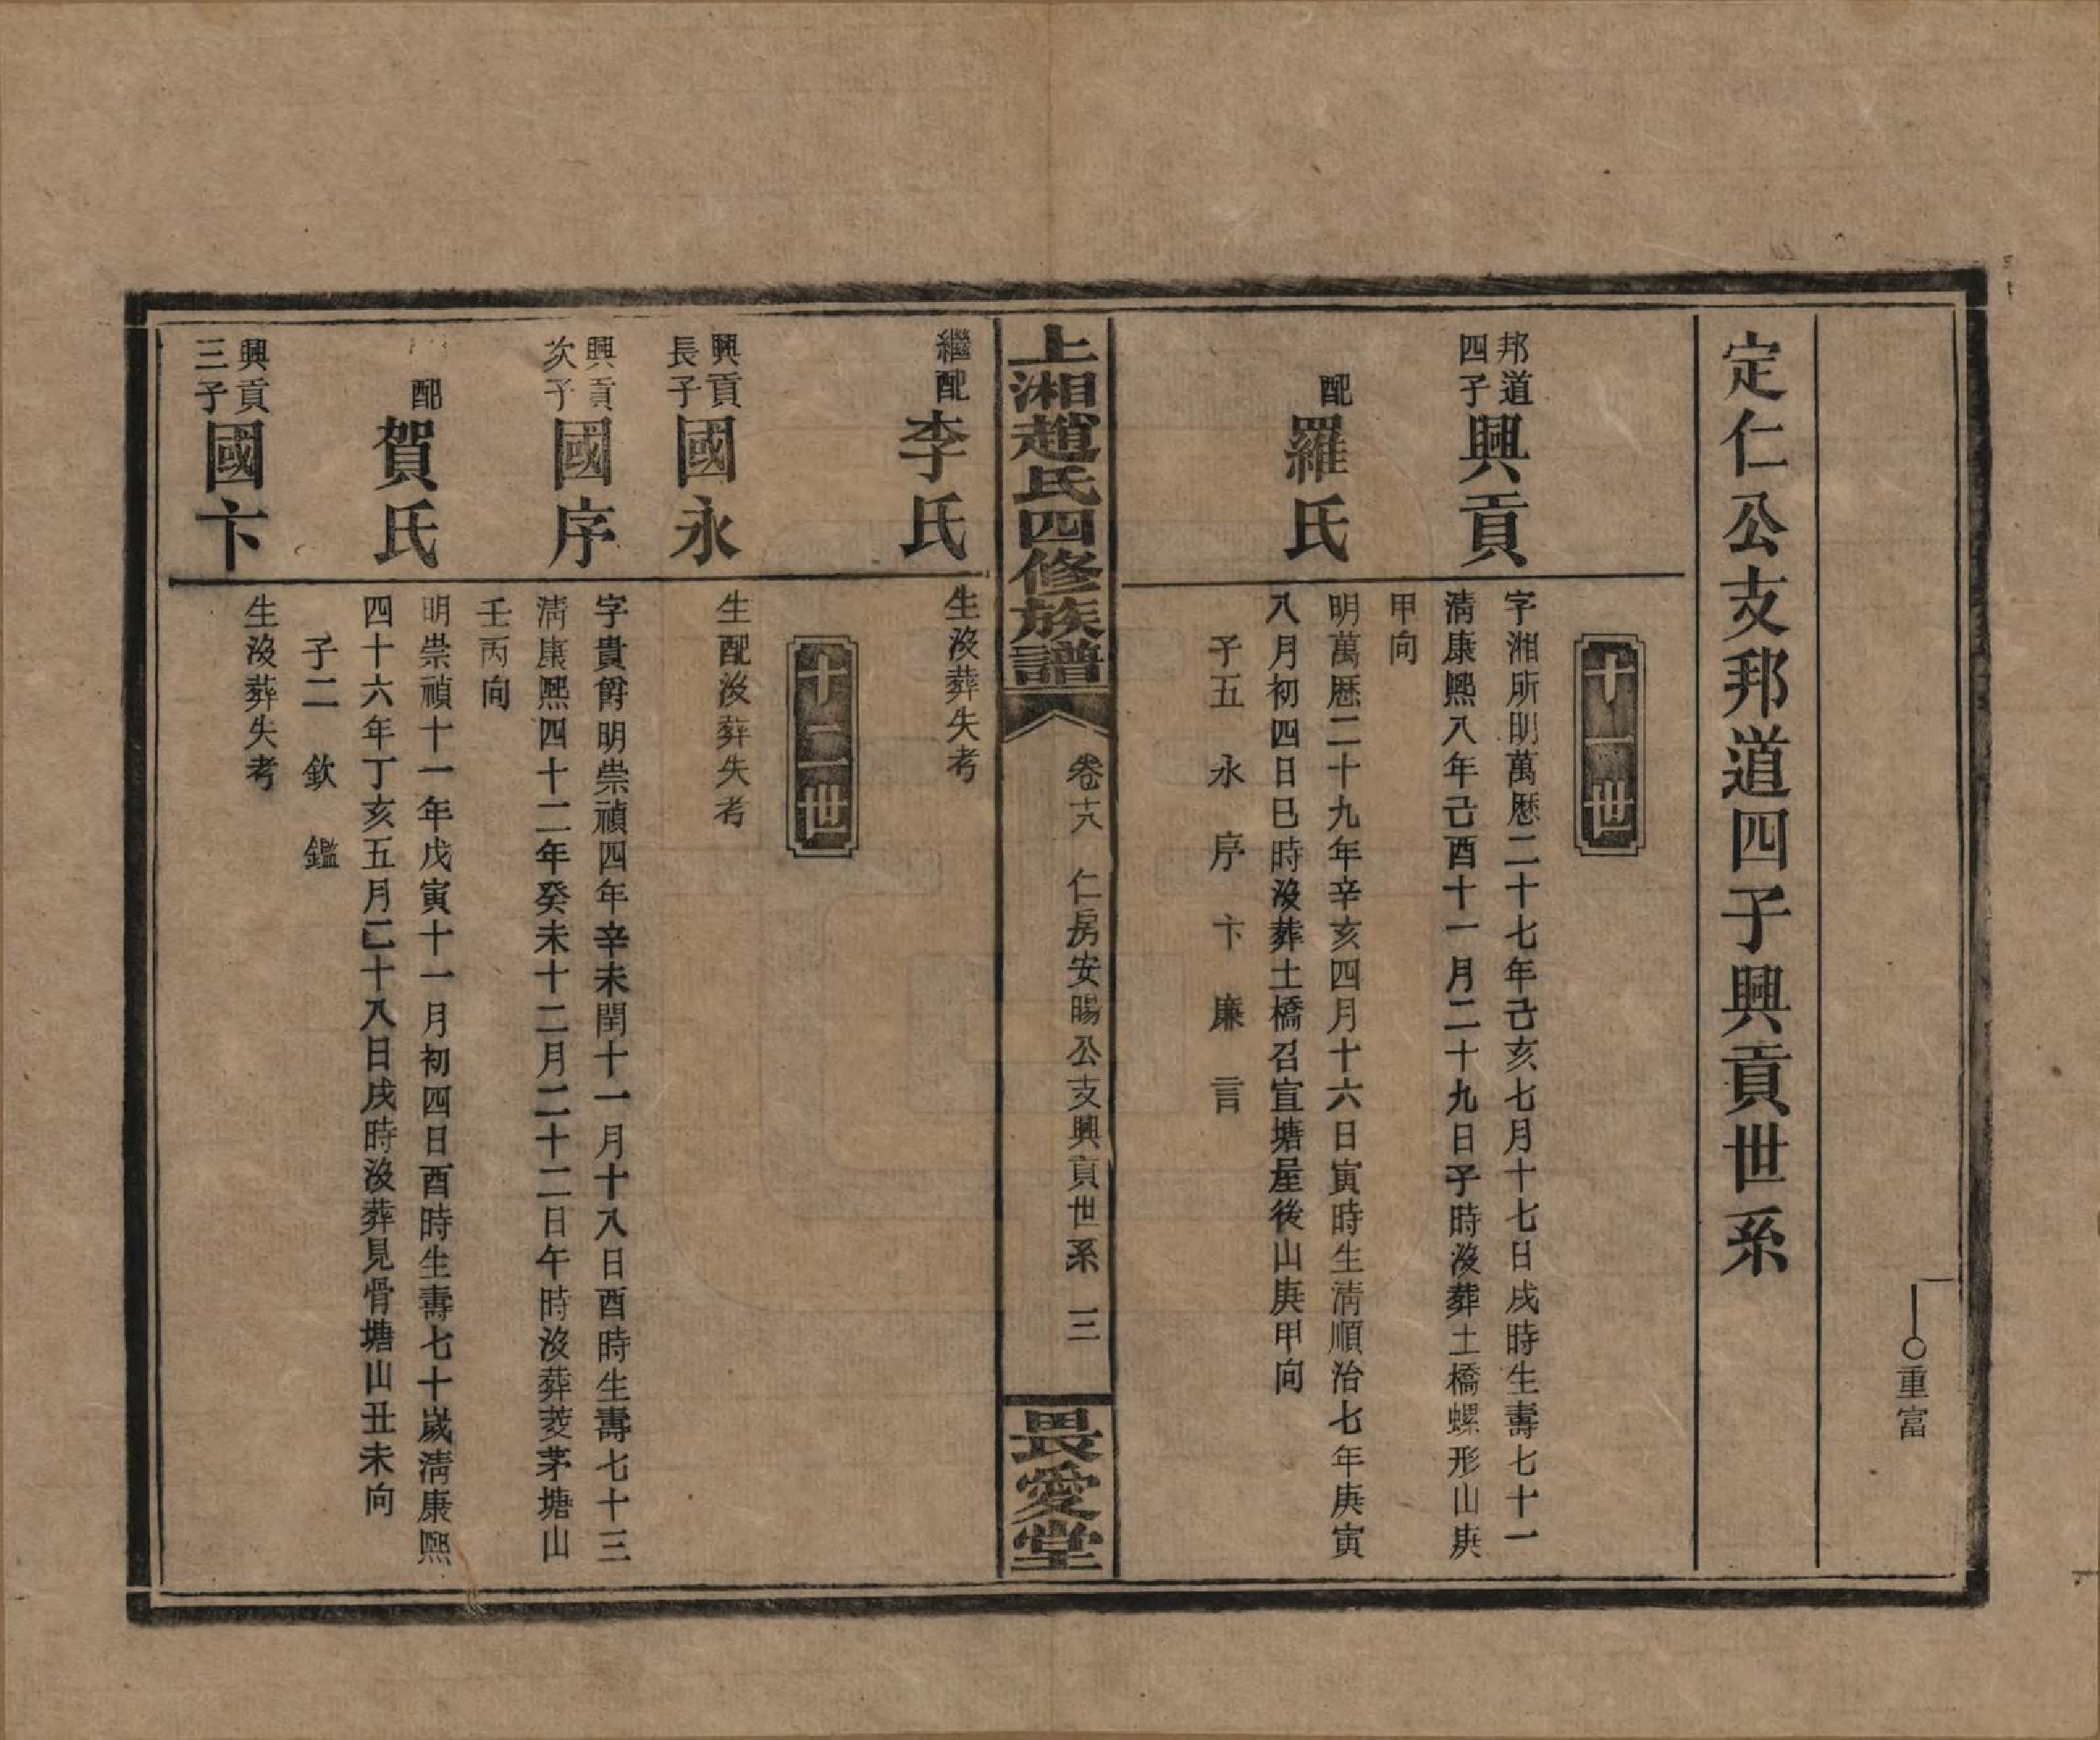 重富
定仁公支邦道四子興貢世系
十一世
邦道
四子
興貢
字湘所明萬歷二十七年己亥七月十七日戌時生壽七十一
清康熙八年己酉十一月二十九日子時沒葬土橋螺形山庚
甲向
配
羅氏
明萬歷二十九年辛亥四月十六日寅時生清順治七年庚寅
八月初四日巳時沒葬土橋召宣塘屋後山庚甲向
子五 永 序 卞 廉 言
上湘趙氏四修族譜
卷十八 仁房安暘公支興貢世系 三
畏愛堂
繼配
李氏
生沒葬失考
十二世
興貢
長子
國永
生配沒葬失考
興貢
次子
國序
字貴爵明崇禎四年辛未閏十一月十八日酉時生壽七十三
清康熙四十二年癸未十二月二十二日午時沒葬菱茅塘山
壬丙向
配
賀氏
明崇禎十一年戊寅十一月初四日酉時生壽七十歲清康熙
四十六年丁亥五月二十八日戌時沒葬見骨塘山丑未向
子二 欽 鑑
興貢
三子
國卞
生沒葬失考